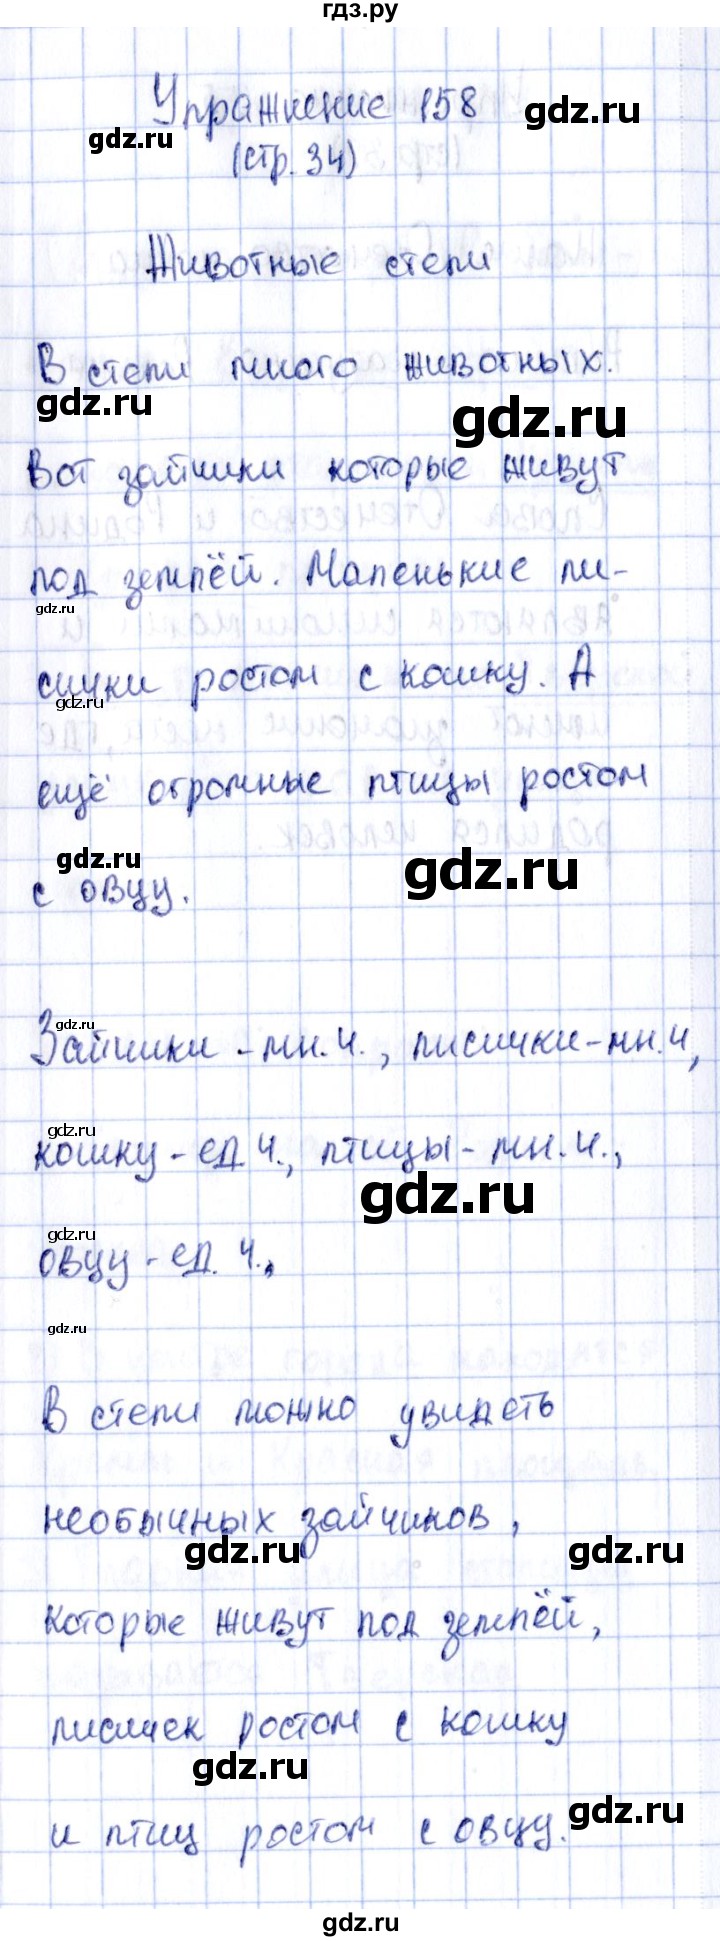 гдз.ру
Упражнение 158
gdz.ru
gdz.ru
(стр. 34)
Животные степи
В степи много животных.
gdz.ru
gdz.ru
Вот зайчики которые живут
под землёй. Маленькие ли-
gdz.ru
сички ростом с кошку. А
gdz.ru
ещё огромные птицы ростом
gdz.ru
gdz.ru
с овцу.
gdz.ru
Зайчики - мн. ч., лисички - мн. ч,
gdz.ru
кошку - ед ч., птицы - мн. ч.,
gdz.ru
gdz.ru
овцу - ед. ч.,
gdz.ru
В степи можно увидеть
необычных зайчиков,
gdz.ru
gdz.ru
которые живут под землёй,
лисичек ростом с кошку
gdz.ru
gdz.ru
и птиц ростом с овцу.
gdz.ru